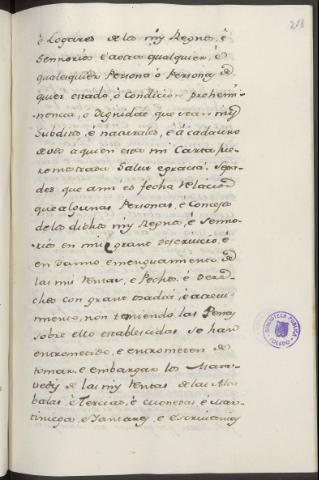 218
è Logares de los mis Regnos, è
Sennorios è à otra qualquier, è
qualesquier Persona ò Personas de
quier estado, ò Condicion, prehemi-
nencia, ò Dignidad que sean mis
Subditos, è naturales, è à cada uno
de vos à quien esta mi Carta fue-
re mostrada Salud è gracia. Sepa-
des que à mi es fecha relacion
que algunas Personas, è Concejos
de los dichos mis Regnos, è Senno-
rios en mi grant deservicio, è
en danno è menguamiento de
las mis rentas, è Pechos è Dere-
chos con grant osadia, è atrevi-
miento, non temiendo las Penas
sobre ello establescidas se han
entremetido, è entremeten de
tomar, è embargar los Mara-
vedis de las mis rentas de las Alca-
balas, è Tercias, è Monedas, è Mar-
tiniega, è Yantares, è Escrivanias
BIBLIOTECA PUBLICA
TOLEDO